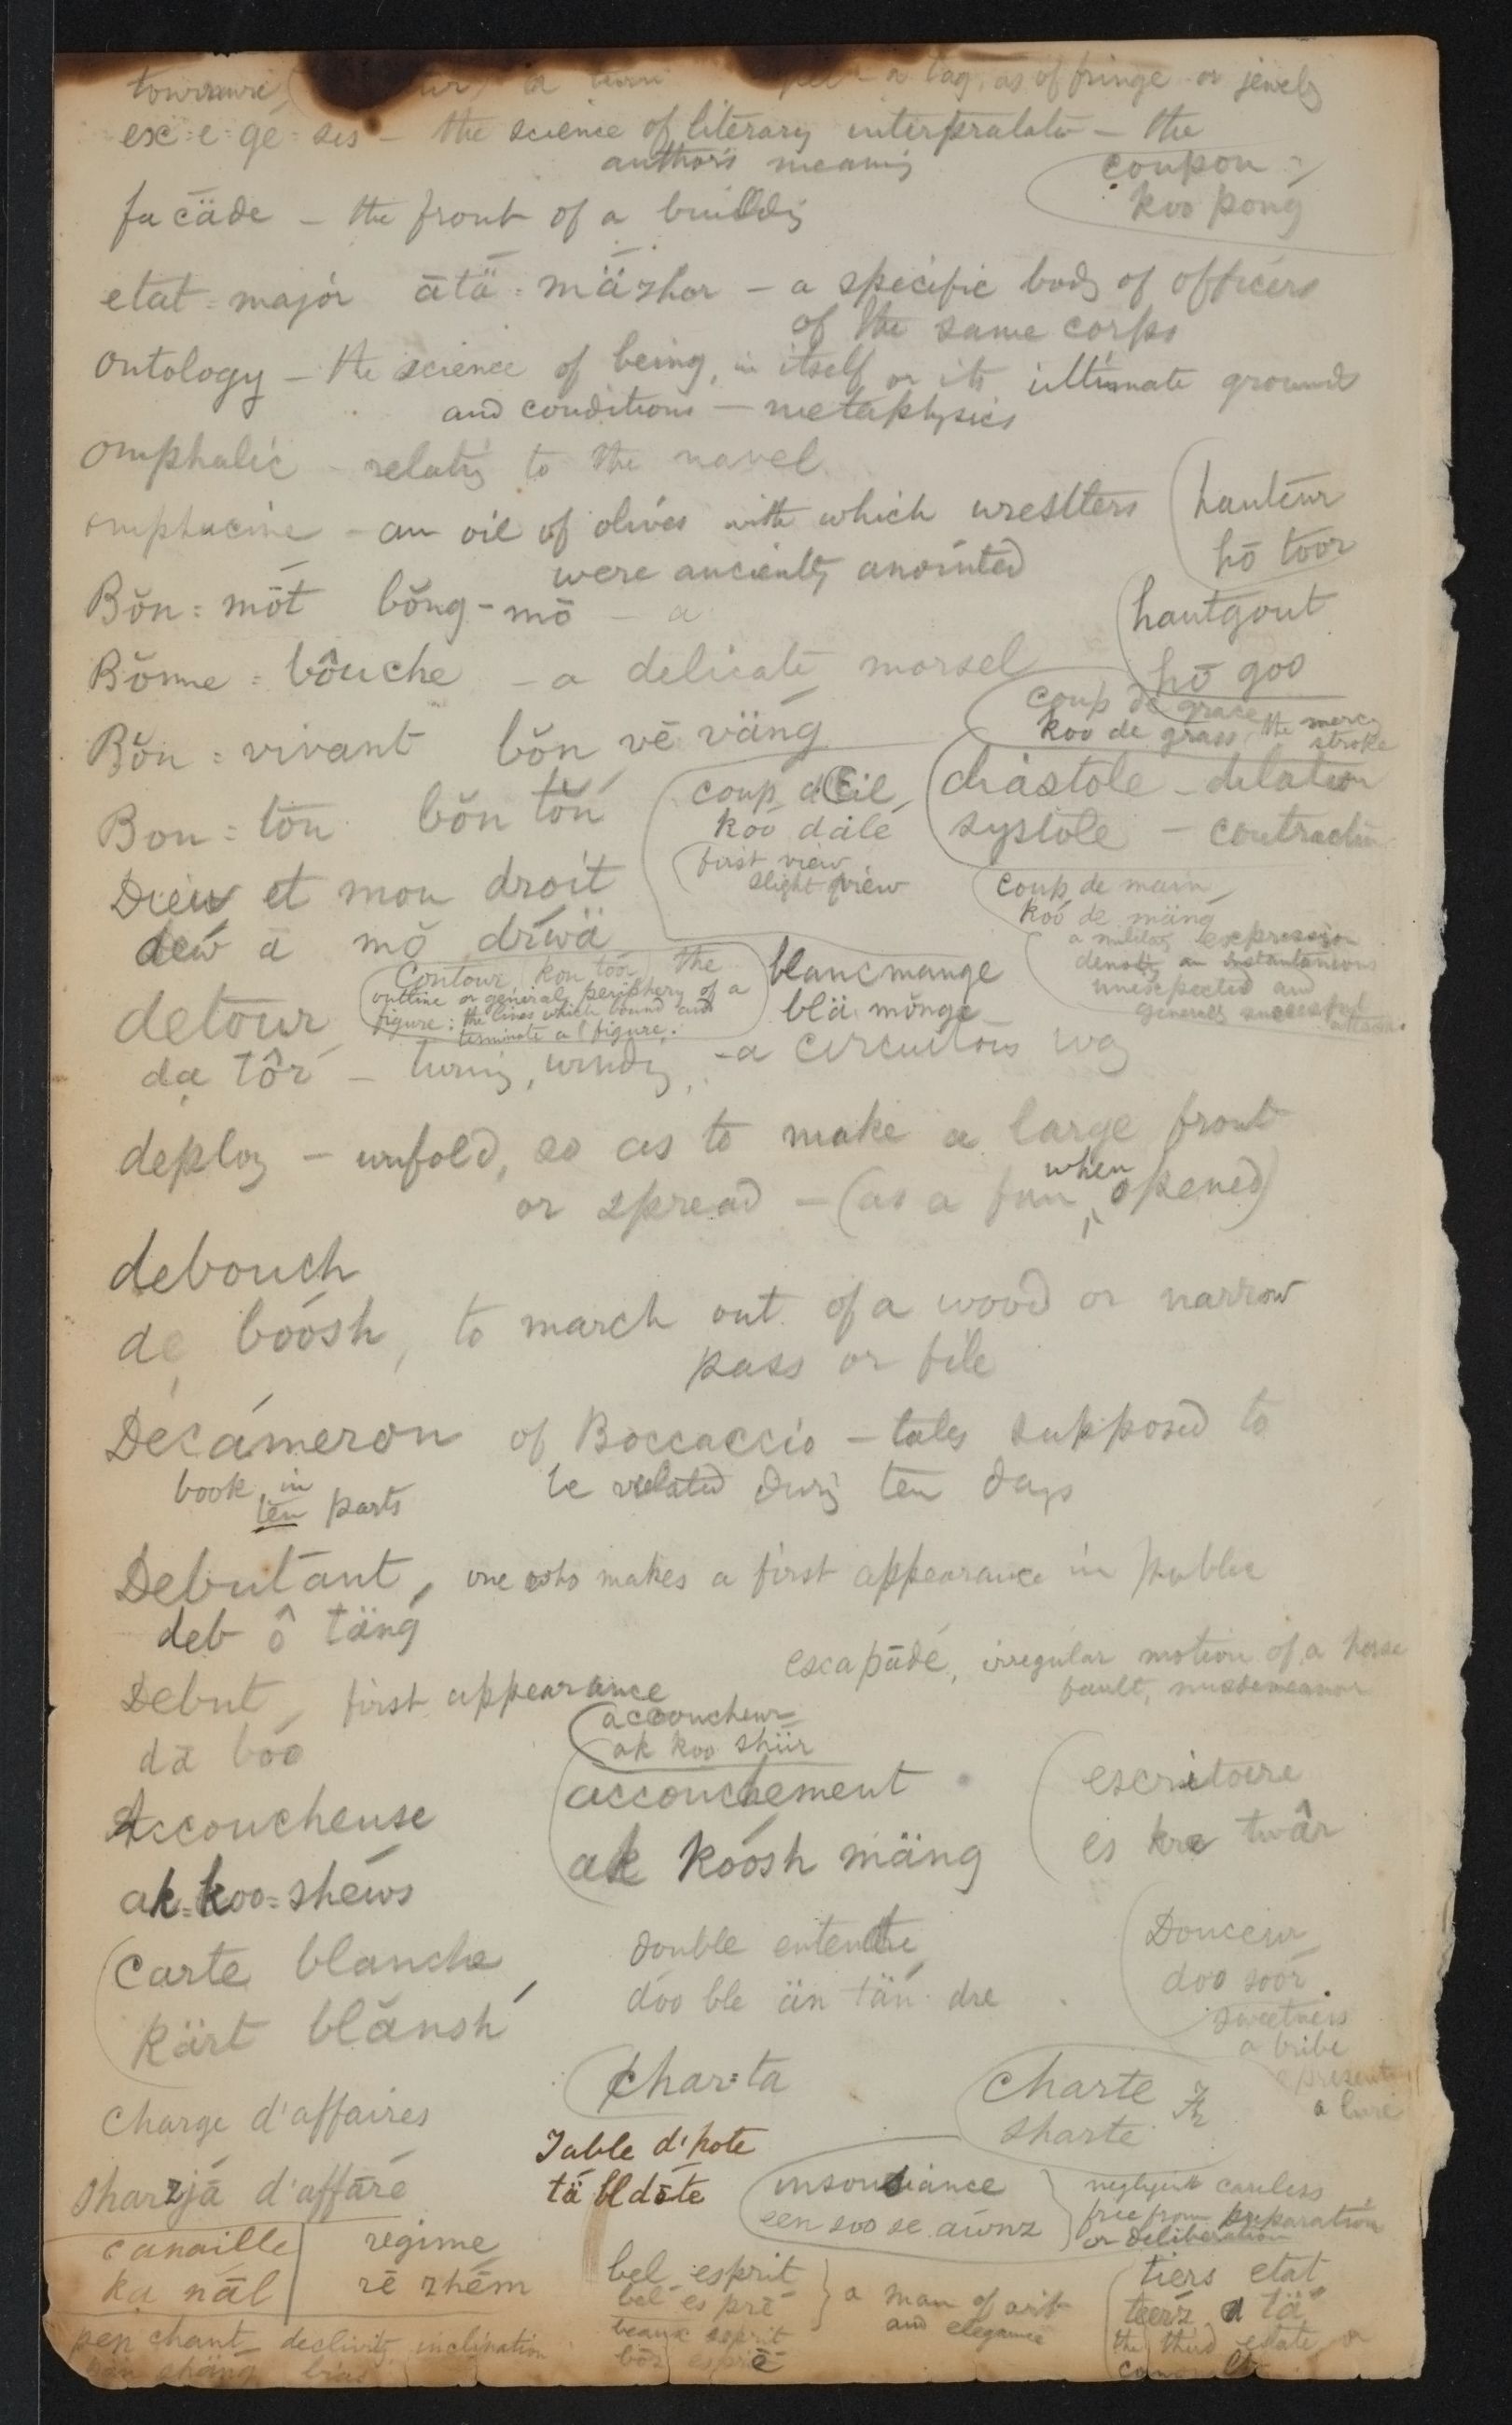 a tag, as of fringe or jewels
ex=e=gé=sis – the science of literary interpralatn – the
author's meaning
coupon
koo pong
façäde – the front of a building
etat=majór ātä=mäzhor – a specific body of officers
of the same corps
ontology – the science of being, in itself or its ultimate grounds
and conditions – metaphysics
omphalic – relatig to the navel
omphacine – an oil of olives with which wrestlers
were anciently anointed
hauteur
hō toor
Bŏn=mōt bŏng-mō – a
hautgout
hō goo
Bŏnne=bôuche – a delicate morsel
coup de grace, the mercy
koo de grass, stroke
Bŏn=vivant bŏn vē väng
coup d'Œil,
koo dále
first view,
slight view
diástole – dilation
systole – contractin
Bon=tŏn bŏn tŏn
Dieu et mon droit
dew ā mŏ drwä
coup de main
koó de mäng
a military expression
denotg an instantaneous
unexpected and
generaly successful
attack.
Contour (kon toór) the
outline or general periphery of a
figure: the lines which bound and
terminate a figure.
blancmange
blä mŏnge
detour
da tôr – turnig, windig, – a circuitous way
deploy – unfold, so as to make a large front
or spread – (as a fan when opened)
debouch
de boósh, to march out of a wood or narrow
pass or file
Decámeron of Boccaccio – tales supposed to
be related durig ten days
book in
ten parts
Debutant, one who makes a first appearance in public
deb ô täng
escapādé, irregular motion of a horse
fault, misdemeanor
Debut, first appearance
dā boo
accoucheur
ak koo shür
accouchement
ak koósh mäng
escritoire
es kre twâr
Accoucheuse
ak=koo=shéws
Carte blanche
Kärt blänsh
double entendre
doó ble än tän dre
Douceur
doo soór
sweetness
a bribe
a present
a lure
char=ta
Charte Fr
sharte
Charge d'affaires
sharzjā d'affāré
Table d'hote
tä bl dōte
insouciance
een soo se äwnz
negligent careless
free from preparation
or deliberation
canaille
ka nāl
regime
rē zhēm
bel esprit
bel es prē
beaux esprit
bōz esprē
a man of wit
and elegance
tiers etat
teerz a tä
the third estate or
penchant declivity inclination
pän shäng bias